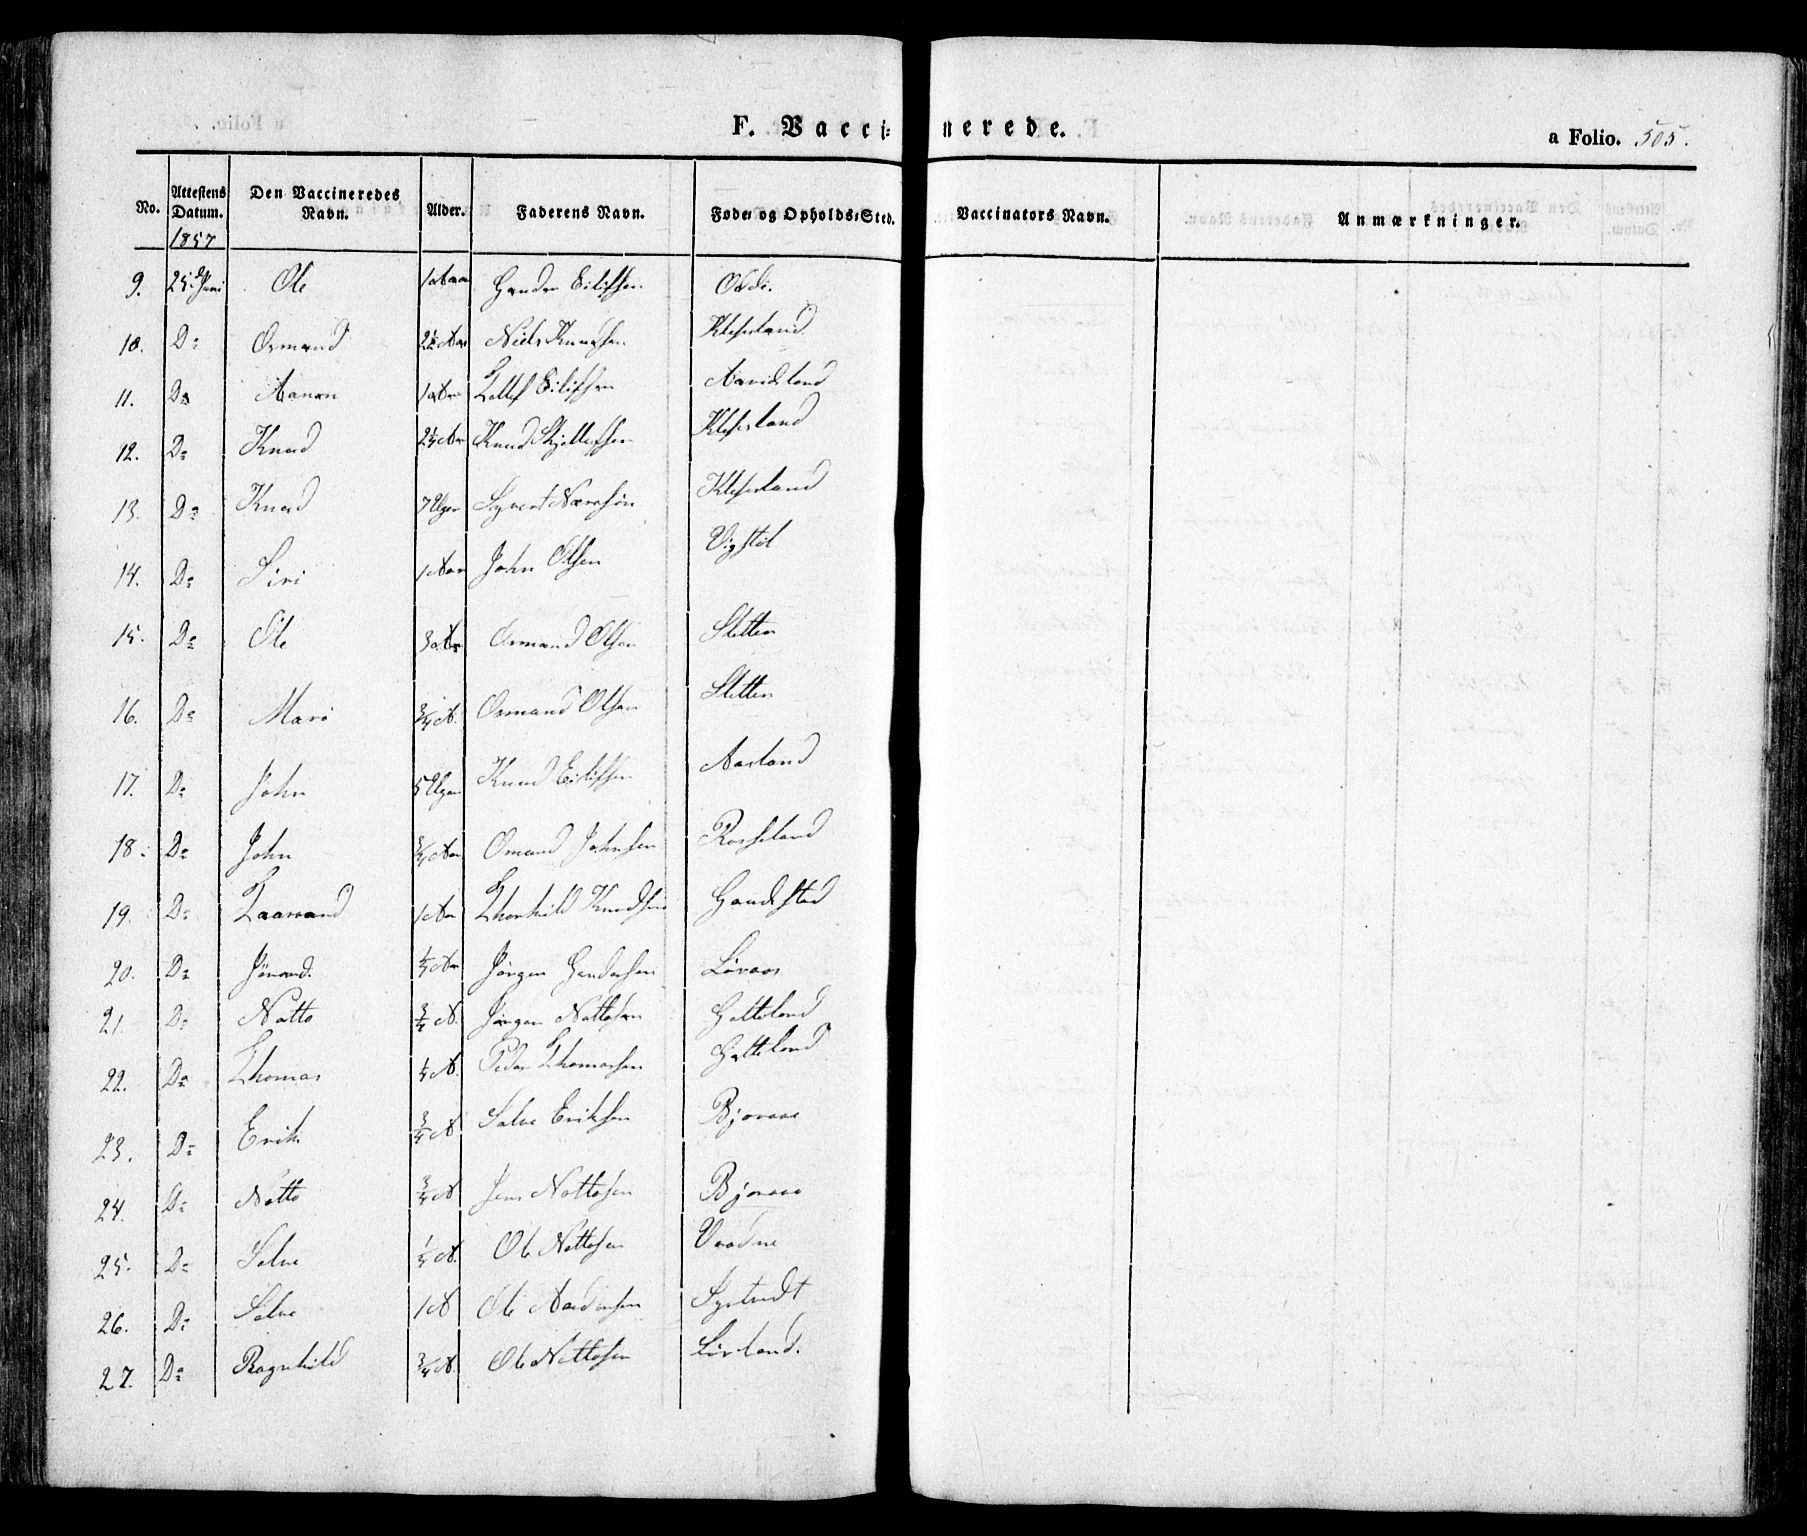 F. Vaccinerede.
a Folio. 505.
No. Attestens Datum. Den Vaccineredes Navn. Alder. Faderens Navn. Føde- og Opholds-Sted. Vaccinators Navn. Anmærkninger.
1857
9. 25de Juni Ole 1 Aar Gunder Eilifsen Odde.
10. Do Osmund 2½ Aar Niels Knudsen Klepsland
11. Do Aanon 1 Aar Tellef Eilifsen Aavidsland
12. Do Knud Knud Kjetelsen Klepsland
13. Do Knud 7 Uger Syvert Klepsland
14. Do Siri 1 Aar John Olsen Vigstøl
15. Do Ole 3 Aar Osmund Olsen Sletten
16. Do Mari ¾ A. Osmund Olsen Sletten
17. Do John 5 Uger Knud Eilifsen Aasland
18. Do John ¾ Aar Omund Johnsen Rosseland
19. Do Taarand 1 Aar Thorkild Knudsen Gaudestad
20. Do Jørand. Aar Jørgen Gundersen Løvaas
21. Do Notto ¾ A. Jørgen Nottosen Hatteland
22. Do Thomas A. Peder Thomassen Hatteland
23. Do Erik ¾ A Salve Eriksen Bjoraae
24. Do Notto ¾ A Jens Nottosen Bjoraae
25. Do Salve A. Ole Nottosen Vaadne
26. Do Salve 1 A Ole
27. Do Ragnhild ¾ A. Ole Nottosen Lisland.